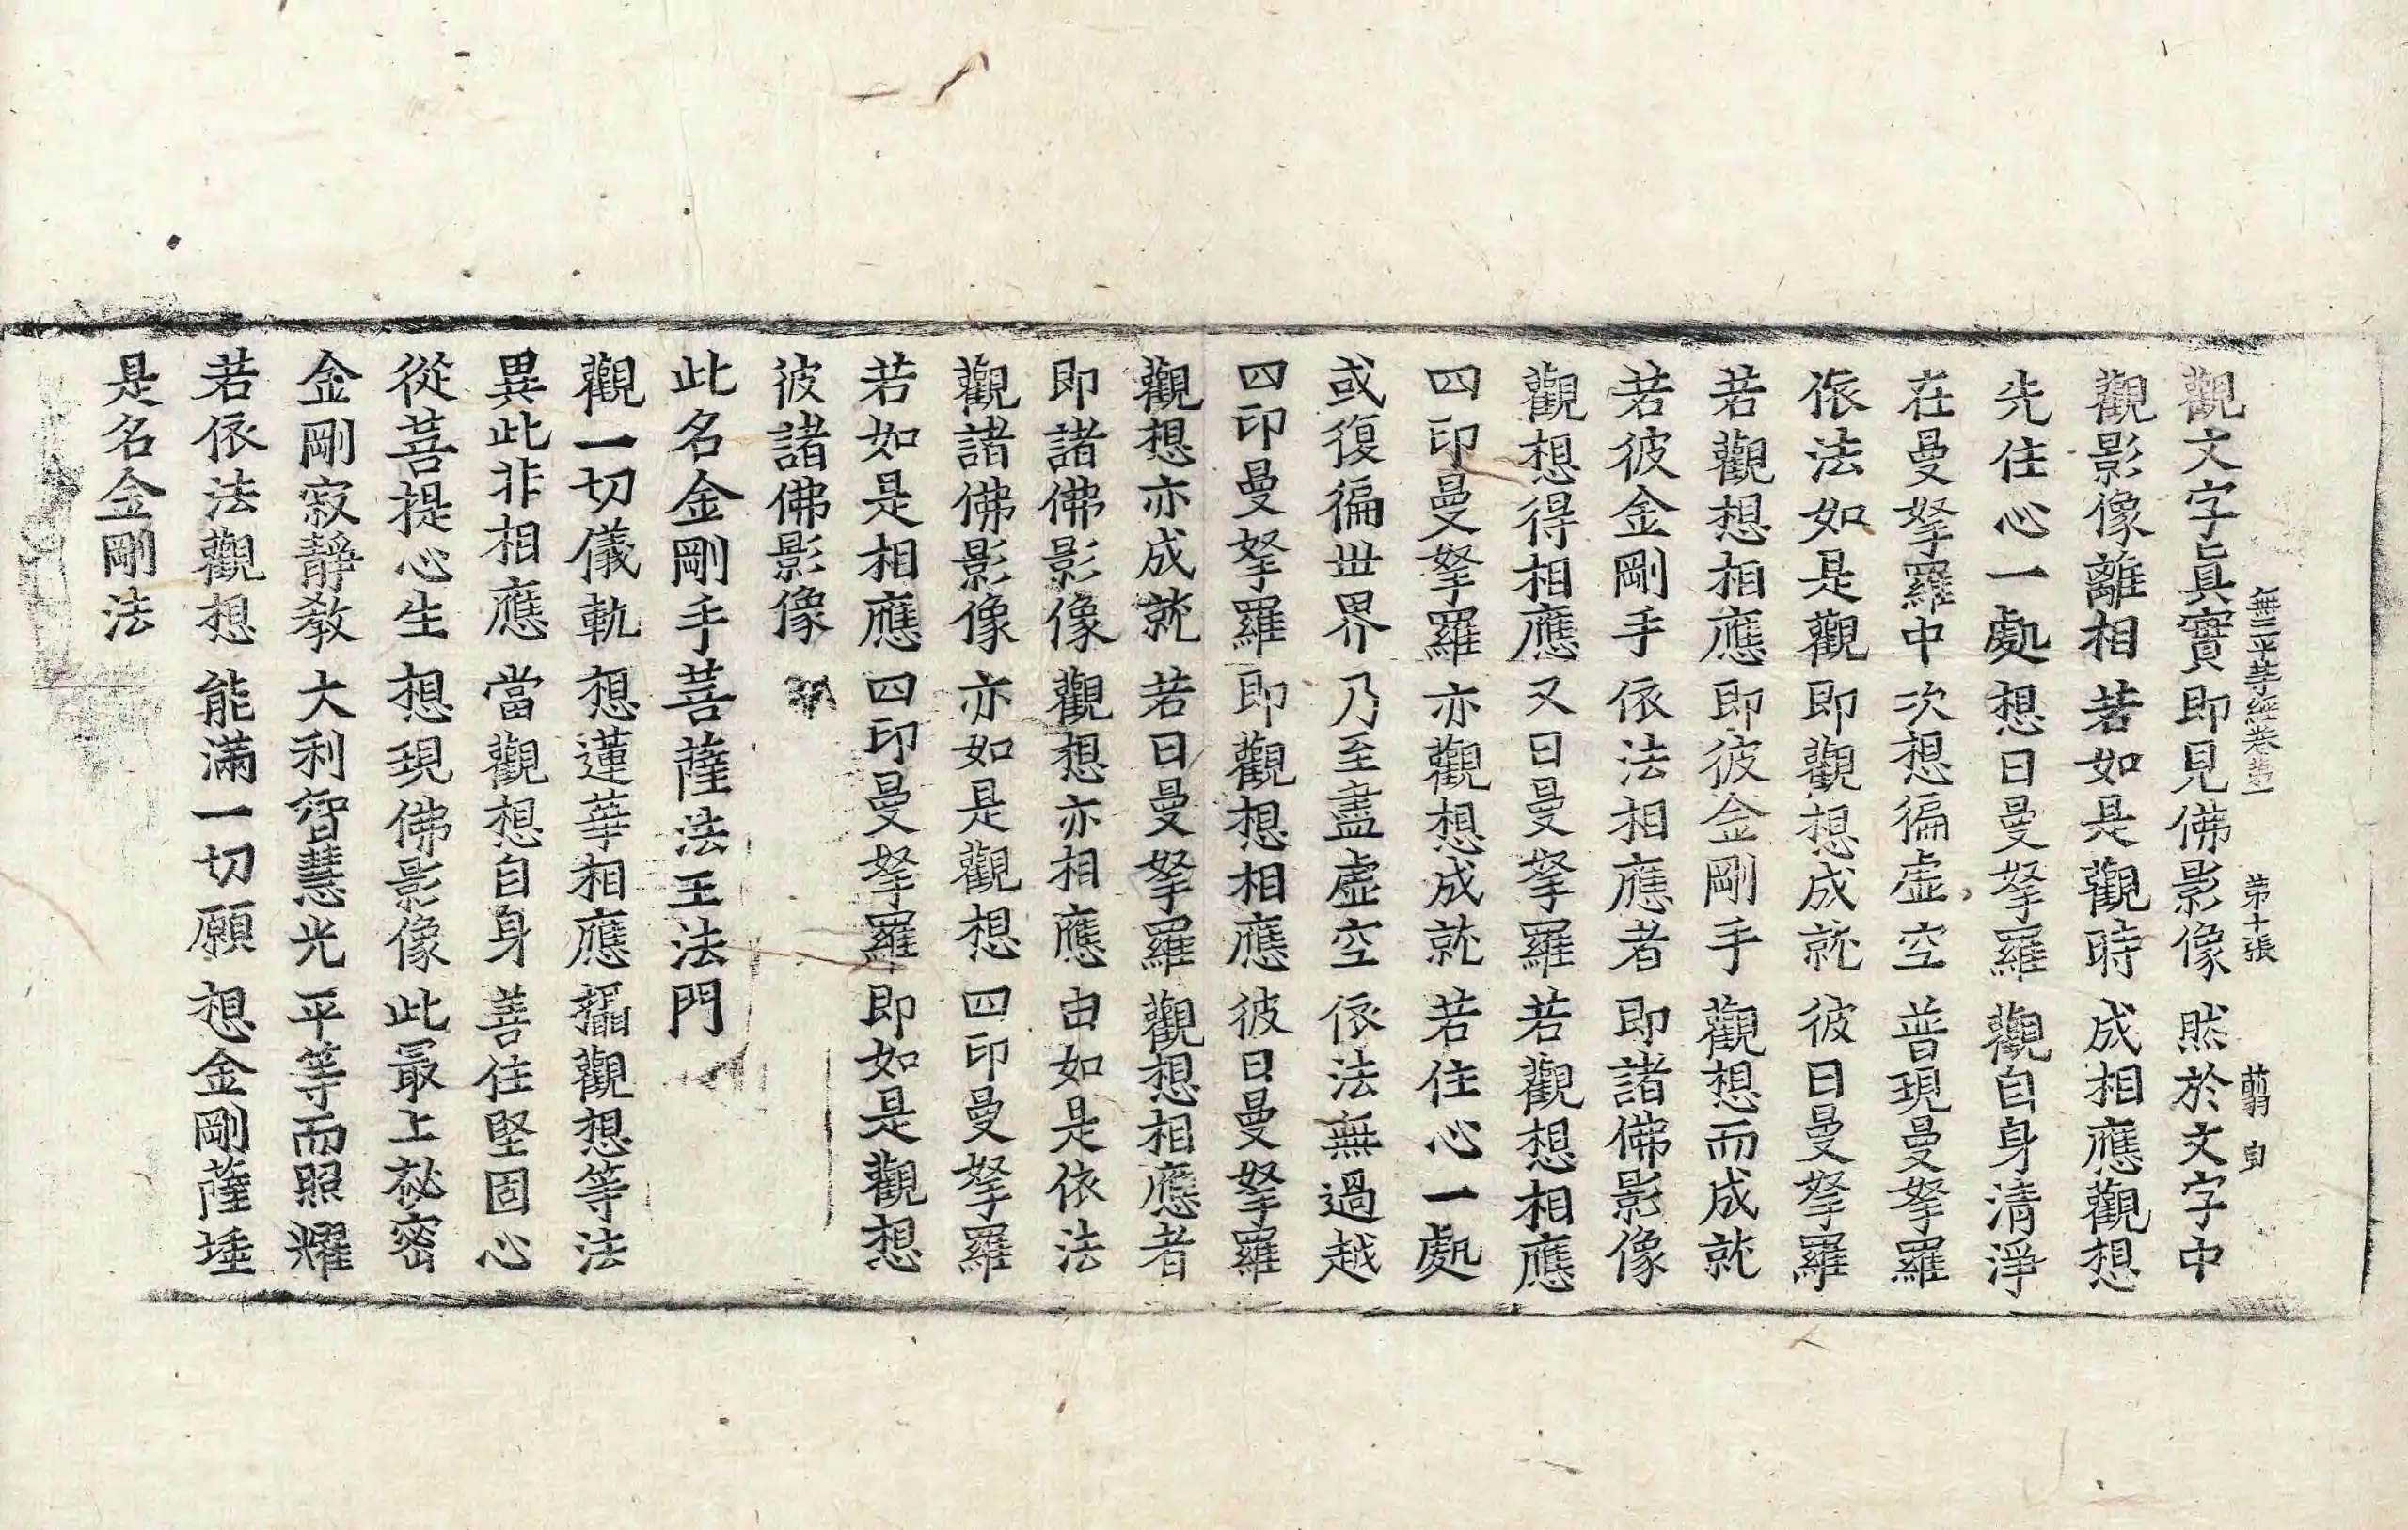 無二平等經卷第一　第十張　翦　自
觀文字眞實　即見佛影像　然於文字中
觀影像離相　若如是觀時　成相應觀想
先住心一處　想日曼拏羅　觀自身清淨
在曼拏羅中　次想徧虛空　普現曼拏羅
依法如是觀　即觀想成就　彼日曼拏羅
若觀想相應　即彼金剛手　觀想而成就
若彼金剛手　依法相應者　即諸佛影像
觀想得相應　又日曼拏羅　若觀想相應
四印曼拏羅　亦觀想成就　若住心一處
或復徧世界　乃至盡虛空　依法無過越
四印曼拏羅　即觀想相應　彼日曼拏羅
觀想亦成就　若日曼拏羅　觀想相應者
即諸佛影像　觀想亦相應　由如是依法
觀諸佛影像　亦如是觀想　四印曼拏羅
若如是相應　四印曼拏羅　即如是觀想
彼諸佛影像
此名金剛手菩薩法王法門
觀一切儀軌　想蓮華相應　攝觀想等法
異此非相應　當觀想自身　善住堅固心
從菩提心生　想現佛影像　此最上祕密
金剛寂靜教　大利智慧光　平等而照耀
若依法觀想　能滿一切願　想金剛薩埵
是名金剛法